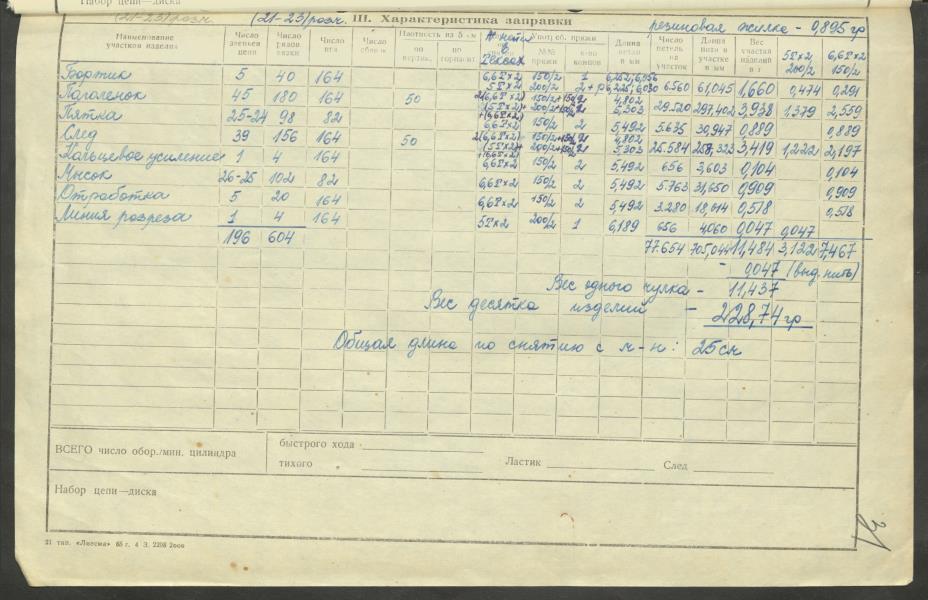 Набор цепи—диска
(21-23) розм. (21-23) розм. III. Характеристика заправки резиновая жилка - 0,895 гр
Наименование участков изделия Число звеньев цепи Число рядов вязки Число игл Число Плотность из 5 см по вертик. по горизонт. № нитей в тексах Употреб. пряжи №№ пряжи к-во концов Длина петли в мм Число петель на участок Длина нити в участке в мм Вес участка изделия в г 5т x2 200/2 6,6т x2 150/2
Бортик 5 40 164 6,6т x2 150/2 1 6560 61,045 1,660 0,474 0,291
Паголенок 45 180 164 50 29.520 297,402 3,938 1,379 2,559
Пятка 25-24 98 82 6,6т x2 150/2 2 5,492 5.635 30,947 0,889 0,889
След 39 156 164 50 25.584 258,323 3,419 1,222 2,197
Кольцевое усиление 1 4 164 6,6т x2 150/2 2 5,492 656 3,603 0,104 0,104
Мысок 26-25 102 82 6,6т x2 150/2 2 5,492 5.763 31,650 0,909 0,909
Отработка 5 20 164 6,6т x2 150/2 2 5,492 3.280 18,014 0,518 0,518
Линия розреза 1 4 164 5т x2 200/2 1 6,189 656 4,060 0,047 0,047
196 604 77.654 705,044 11,484 3,122 7,467
- 0,047 (выд. нить)
Вес одного чулка - 11,437
Вес десятка изделий - 228,74 гр
Общая длина по снятию с м-н: 25 см
ВСЕГО число обор./мин. цилиндра быстрого хода
тихого Ластик След
Набор цепи—диска
21 тип. «Лиесма» 65 г. 4 З. 2208 2000